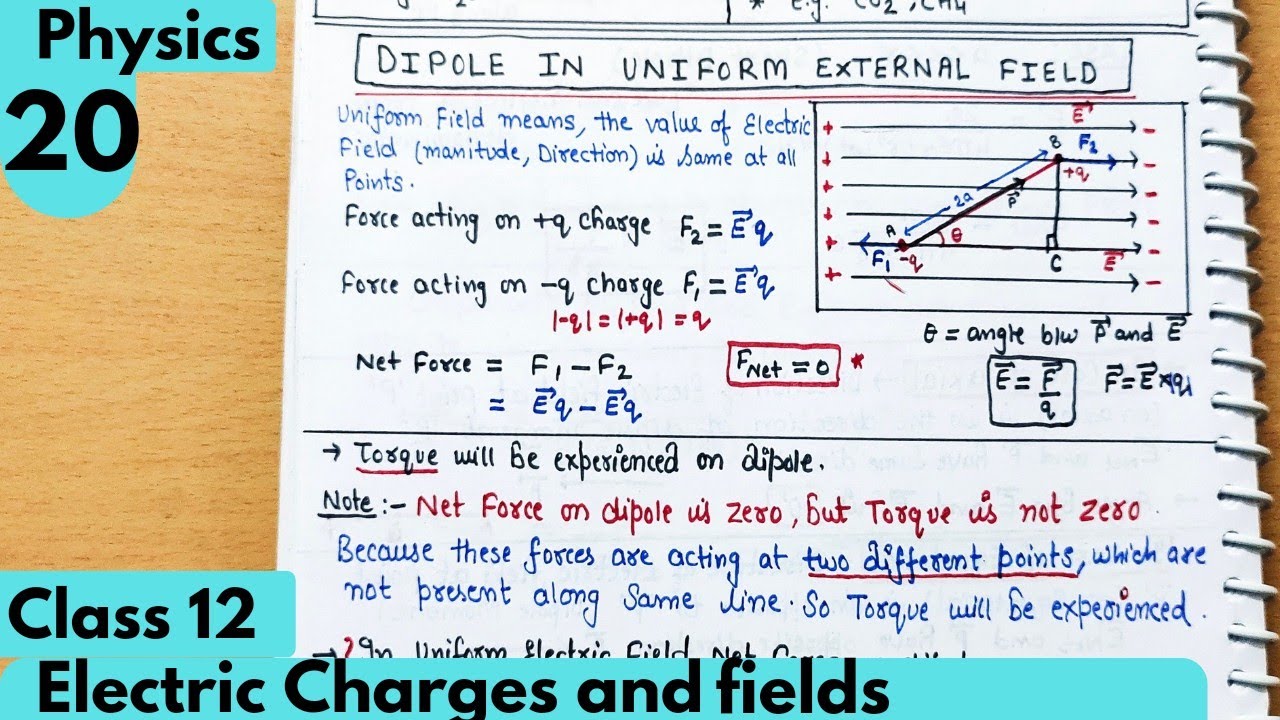 Physics
20
* e.g. CO2, CH4
DIPOLE IN UNIFORM EXTERNAL FIELD
Uniform Field means, the value of Electric
Field (manitude, Direction) is same at all
Points.
Force acting on +q charge F2 = E⃗q
Force acting on -q charge F1 = E⃗q
|-q| = |+q| = q
Net Force = F1 - F2
= E⃗q - E⃗q
FNet = 0 *
+ E⃗ -
+ B F2 -
+q
+ 2a P⃗ -
+ -
+ A θ -
F1 -q C E⃗
+ -
θ = angle b/w P⃗ and E⃗
E⃗ = F⃗/q F⃗ = E⃗ × q
→ Torque will be experienced on dipole.
Note :- Net Force on dipole is zero, but Torque is not zero.
Because these forces are acting at two different points, which are
not present along same line. So Torque will be experienced.
→ ? In Uniform Electric Field Net
Class 12
Electric Charges and fields